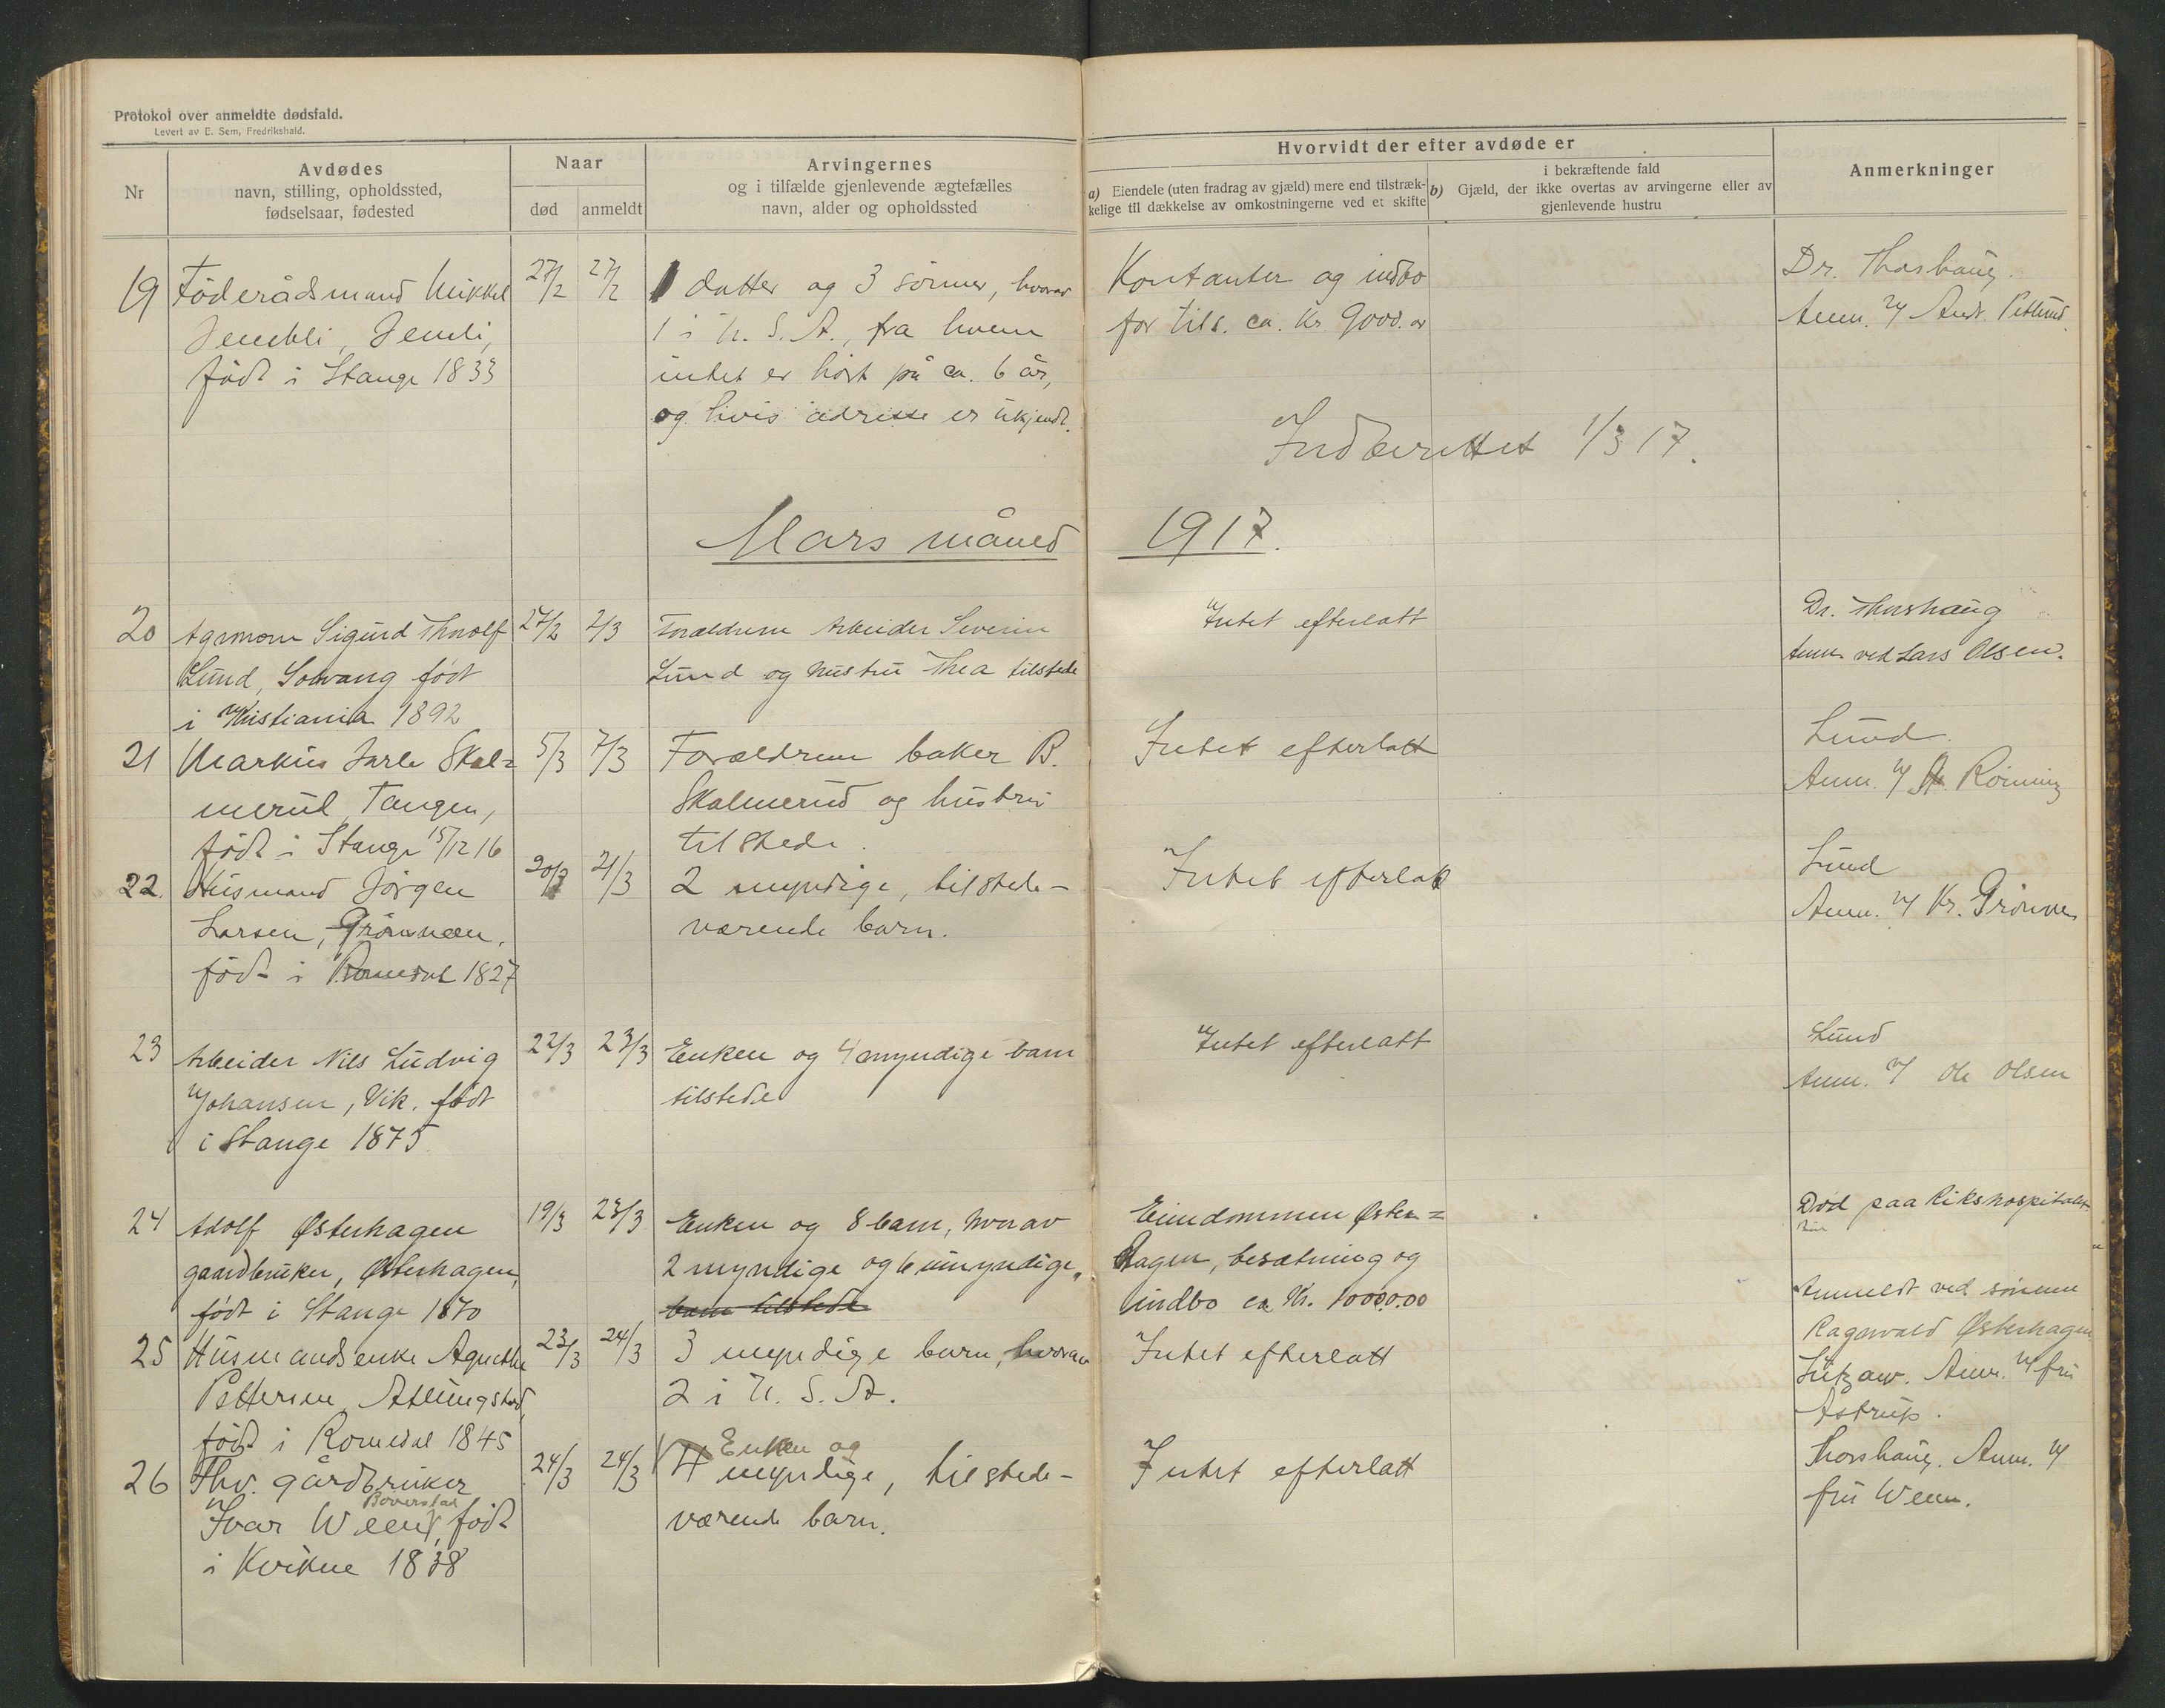 Protokol over anmeldte dødsfald.
Levert av E. Sem, Fredrikshald.
Nr
Avdødes
navn, stilling, opholdssted,
fødselsaar, fødested
Naar
død
anmeldt
Arvingernes
og i tilfælde gjenlevende ægtefælles
navn, alder og opholdssted
Hvorvidt der efter avdøde er
a) Eiendele (uten fradrag av gjæld) mere end tilstræk-
kelige til dækkelse av omkostningerne ved et skifte
i bekræftende fald
b) Gjæld, der ikke overtas av arvingerne eller av
gjenlevende hustru
Anmerkninger
19
Föderådsmand Mikkel
Jemli,
født i Stange 1833
27/2
27/2
1 datter og 3 sönner, hvorav
1 i U. S. A., fra hvem
intet er hört på ca. 6 år,
og hvis adresse er ukjendt.
Kontanter og indbo
for tils. ca. Kr 9000.00
Dr. Thorshaug.
Anm. v/ Andr. Petlund.
Indberettet 1/3 17.
Mars måned 1917.
20
Agronom Sigurd Thorolf
Lund, Solvang født
i Kristiania 1892
27/2
2/3
Forældrene Arbeider Severin
Lund og hustru Thea tilstede
Intet efterlatt
Dr. Thorshaug
Anm. ved Lars Olsen.
21
Markus Jarle Skal=
merud, Tangen,
født i Stange 15/12 16
5/3
7/3
Forældrene baker B.
Skalmerud og hustru
tilstede.
Intet efterlatt
Lund.
Anm. v/ Röining
22.
Husmand Jörgen
Larsen, Grönnæen,
født i Romedal 1827
20/3
21/3
2 myndige, tilstede-
værende barn.
Intet efterlatt
Lund
Anm. v/ Kr. Grönnæen
23
Arbeider Nils Ludvig
Johansen, Vik. født
i Stange 1875
22/3
23/3
Enken og 4 myndige barn
tilstede
Intet efterlatt
Lund
Anm. v/ Ole Olsen
24
Adolf Østerhagen
gaardbruker, Østerhagen,
født i Stange 1870
19/3
23/3
Enken og 8 barn, hvorav
2 myndige og 6 umyndige,
barn tilstede
Eiendommen Øster=
hagen, besætning og
indbo ca Kr. 10000.00
Død paa Rikshospitalet.
Anmeldt ved sönnen
Ragnvald Østerhagen
25
Husmandsenke Agnethe
Pettersen, Atlungstad,
født i Romedal 1845
23/3
24/3
3 myndige barn, hvorav
2 i U. S. A.
Intet efterlatt
Lützow. Anm. v/ fru
Astrup.
26
Fhv. gårdbruker
Ivar Ween, Böverstad født
i Kvikne 1838
24/3
24/3
Enken og
4 myndige, tilstede-
værende barn.
Intet efterlatt
Thorshaug. Anm. v/
fru Ween.